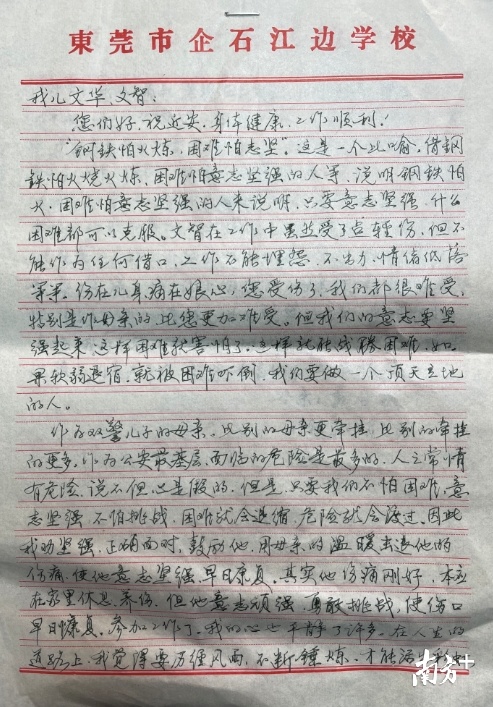 東莞市企石江边学校
我儿文华、文智：
您们好，祝近安、身体健康、工作顺利！
"钢铁怕火炼，困难怕志坚"。这是一个比喻，借钢
铁怕火烧火炼，困难怕意志坚强的人等，说明钢铁怕
火，困难怕意志坚强的人来说明，只要意志坚强，什么
困难都可以克服。文智在工作中虽然受了点轻伤，但不
能作为任何借口，工作不能埋怨，不出力，情绪低落
等等。伤在儿身痛在娘心，您受伤了，我们都很难受，
特别是作母亲的比您更加难受。但我们的意志要坚
强起来，这样困难就害怕了，这样就能战勝困难，如
果软弱退宿，就被困难吓倒，我们要做一个顶天立地
的人。
作为双警儿子的母亲，比别的母亲更牵挂，比别的牵挂
的更多，作为公安最基层，面临的危险是最多的，人之常情
有危险，说不但心是假的，但是，只要我们不怕困难，意
志坚强，不怕挑战，困难就会退缩，危险就会渡过，因此
我劝坚强，正确面对，鼓励他，用母亲的温暖去退他的
伤痛，使他意志坚强，早日康复，其实他伤痛刚好，本应
在家里休息，养伤，但他意志顽强，勇敢挑战，使伤口
早日康复，参加工作了，我的心也平静了许多，在人生的
道路上，我觉得要历经风雨，不断锤炼，才能
南方+